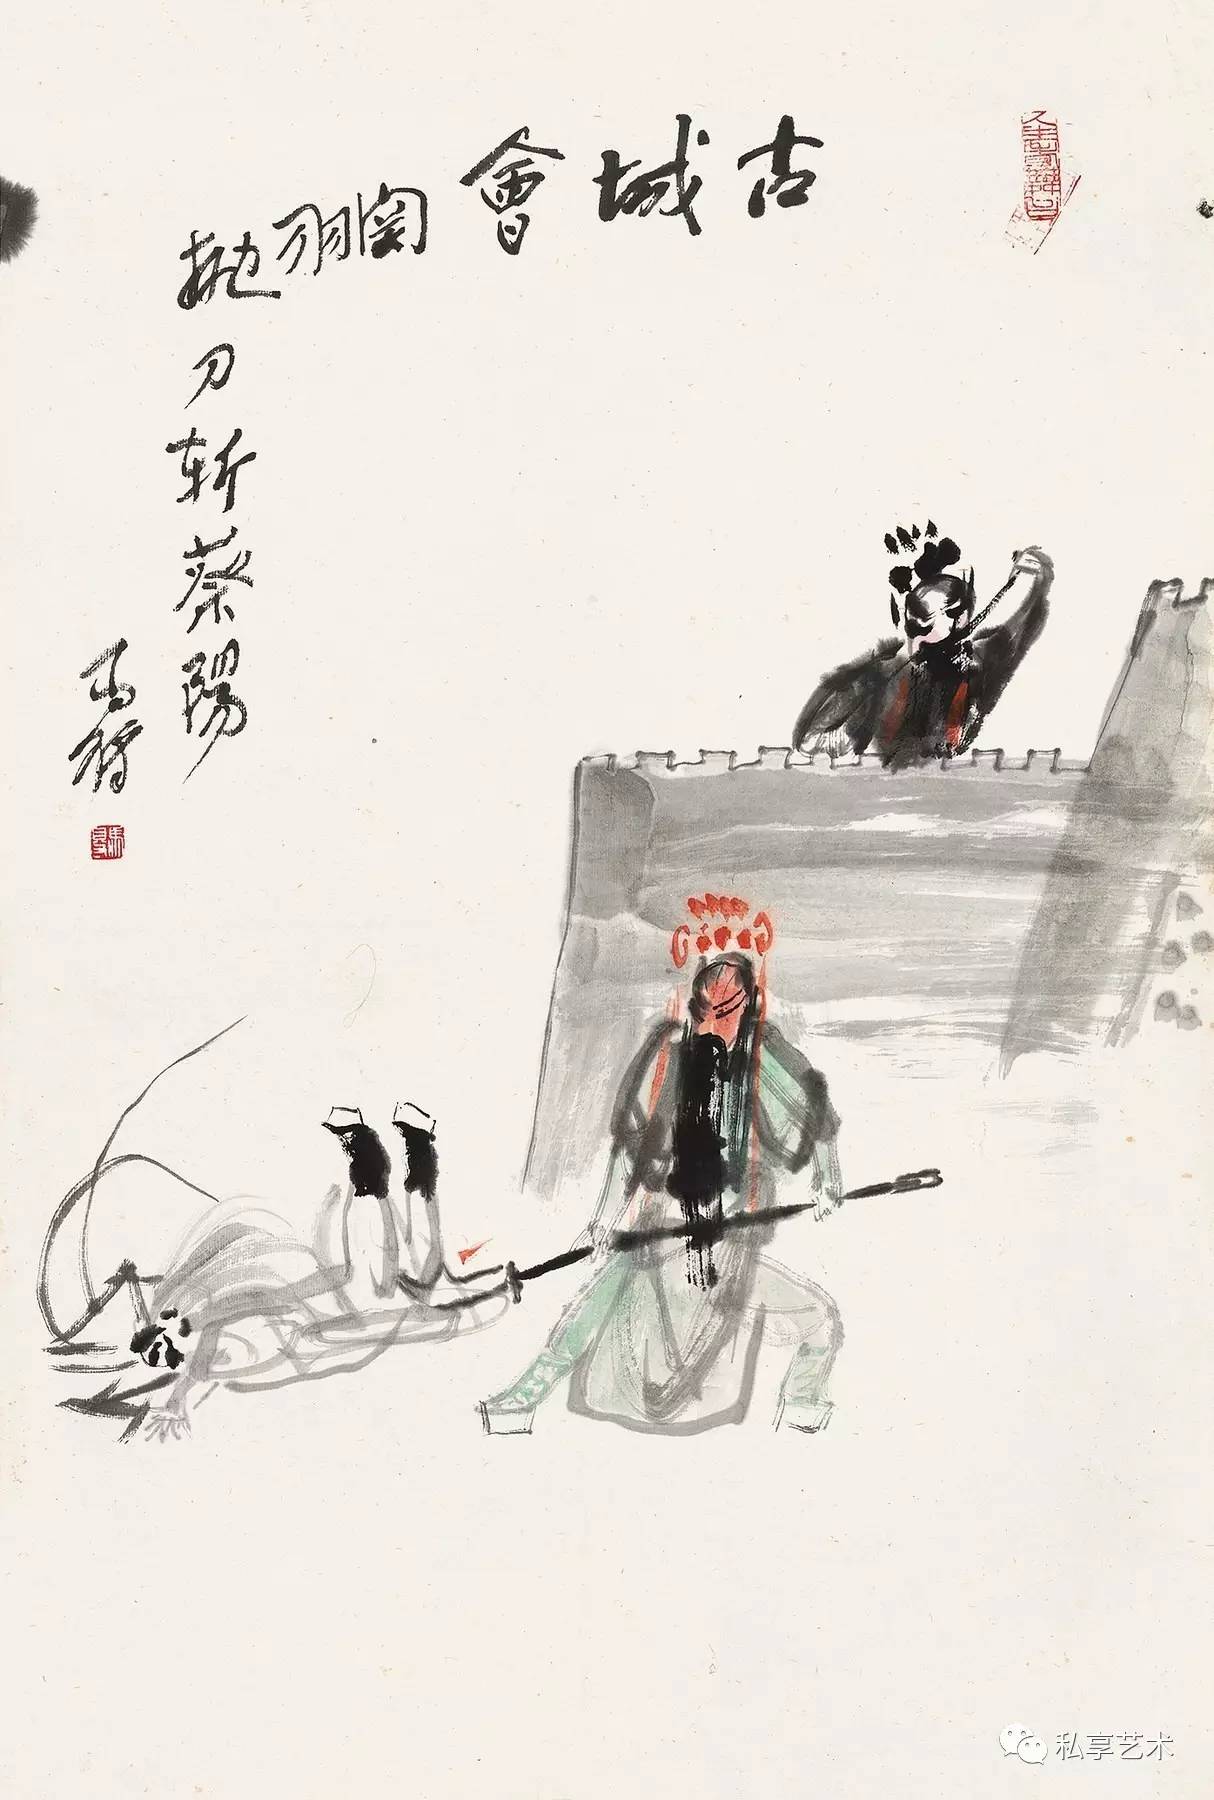 古城會
關羽
拋刀斬蔡陽
私享艺术